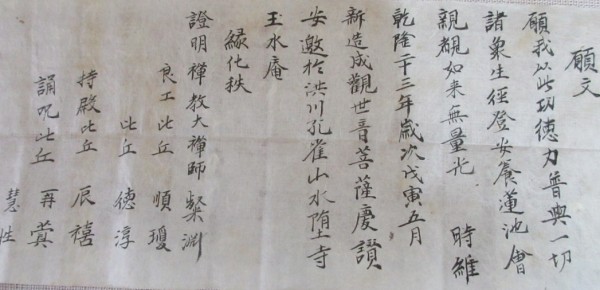 願文
願我以此功德力普與一切
諸衆生徑登安養蓮池會
親覩如来無量光 時維
乾隆二十三年歲次戊寅五月
新造成觀世音菩薩慶讚
安邀於洪川孔雀山水墮寺
玉水庵
縁化秩
證明禪敎大禪師 粲淵
良工比丘 順瓊
比丘 德淳
持殿比丘 辰禧
誦呪比丘 再
慧性